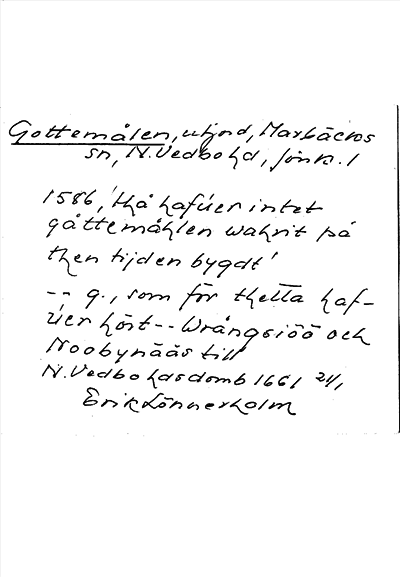 Gottemålen, utjord, Marbäcks
sn, N.Vedbo hd, Jönk. l
1586, 'thå hafuer intet
gåttemåhlen wahrit på
then tijden bygdt'
-- g., som för thetta haf-
uer hört -- Wrångsiöö och
Noobynääs till
N.Vedbo hds domb 1661 21/1
Erik Lönnerholm